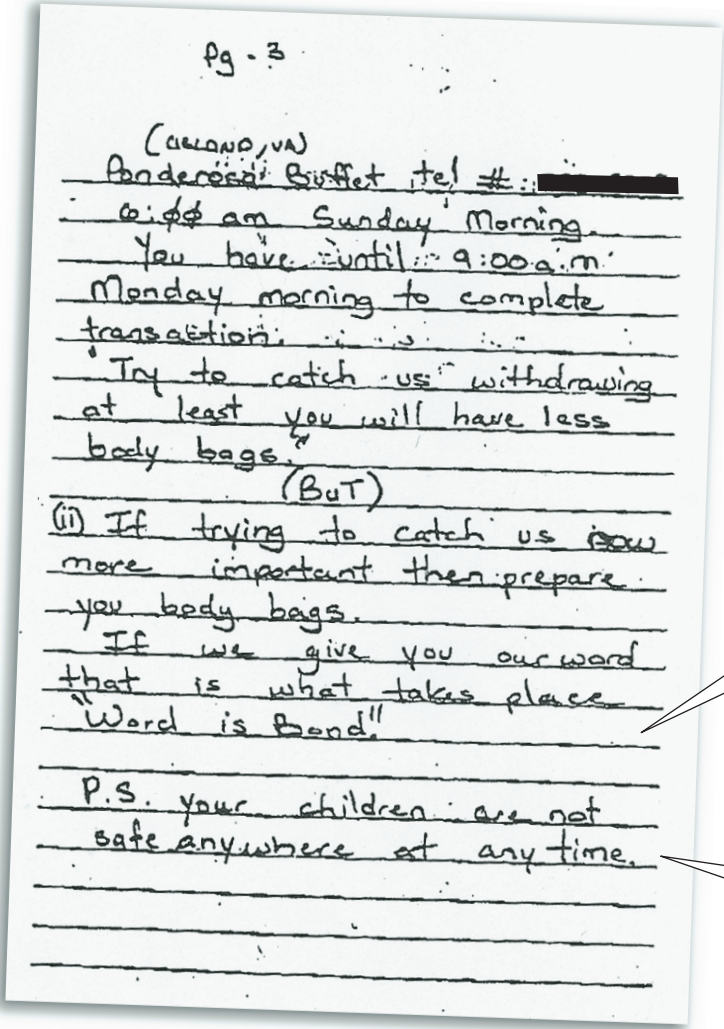 Pg - 3
(ASHLAND, VA)
Ponderosa Buffet tel #:
6:00 am Sunday Morning.
You have until 9:00 a.m.
Monday morning to complete
transaction.
"Try to catch us withdrawing
at least you will have less
body bags."
(BuT)
(ii) If trying to catch us now
more important then prepare
you body bags.
If we give you our word
that is what takes place
"Word is Bond."
P.S. your children are not
safe anywhere at any time.